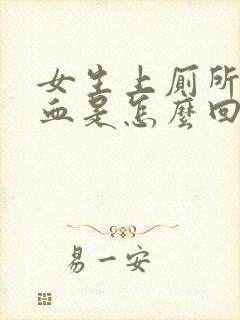 女生上厕所
血是怎麼回
易一安